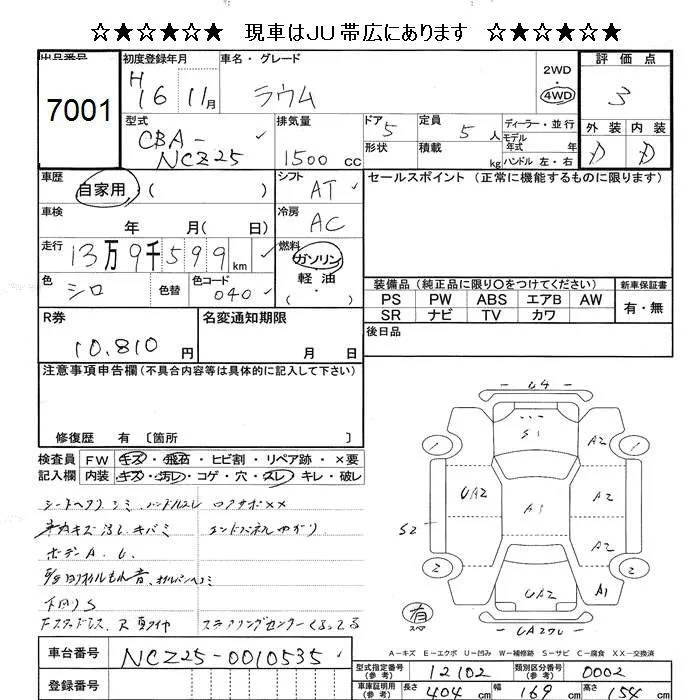 ☆★☆★☆★☆ 現車はJU帯広にあります ☆★☆★☆★☆
出品番号
7001
初度登録年月
H 16 11月
車名・グレード
ラウム
2WD
・
4WD
評価点
3
外装 内装
D D
型式
CBA-
NCZ25
排気量
1500 cc
ドア 5
形状
定員 5 人
積載 kg
ディーラー・並行
モデル年式 年
ハンドル 左・右
車歴
自家用・( )
シフト
AT
セールスポイント (正常に機能するものに限ります)
車検
年 月( 日)
冷房
AC
走行
13万9千599km
燃料
ガソリン
軽油
( ・ )
色
シロ
色替
色コード
040
装備品(純正品に限り○をつけてください)
新車保証書
PS PW ABS エアB AW
有・無
SR ナビ TV カワ
R券
10,810 円
名変通知期限
月 日
後日品
注意事項申告欄(不具合内容等は具体的に記入して下さい)
修復歴 有 〔箇所 〕
検査員 FW キズ・飛石・ヒビ割・リペア跡・×要
記入欄 内装 キズ・汚レ・コゲ・穴・スレ・キレ・破レ
シートヘタリ、シミ、ハンドルスレ
ロアサポ××
車内キズ
エンドパネルゆがり
ボデーA、U
下回りS
ステアリングセンターくるってる
U4
S1
1
1
A2
UA2
A1
A2
S2
A2
2
2
UA2
A1
有
スペア
A-キズ E-エクボ U-凹み W-補修跡 S-サビ C-腐食 XX-交換済
車台番号
NCZ25-0010535
登録番号
型式指定番号(参考)
12102
類別区分番号(参考)
0002
車庫証明用(参考)
長さ 404 cm
幅 169 cm
高さ 154 cm